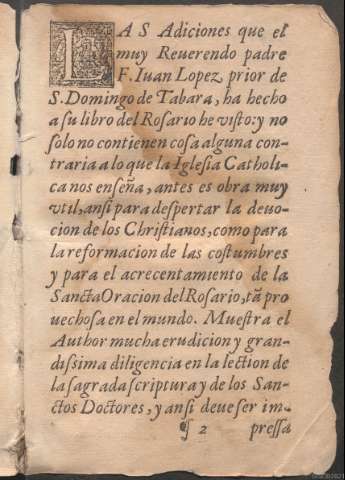 LAS Adiciones que el
muy Reuerendo padre
F. Iuan Lopez, prior de
S. Domingo de Tabara, ha hecho
a su libro del Rosario he visto: y no
solo no contienen cosa alguna con-
traria a lo que la Iglesia Catholi-
ca nos enseña, antes es obra muy
vtil, ansi para despertar la deuo-
cion de los Christianos, como para
la reformacion de las costumbres
y para el acrecentamiento de la
Sancta Oracion del Rosario, tã pro
uechosa en el mundo. Muestra el
Author mucha erudicion y gran-
dissima diligencia en la lection de
la sagrada scriptura y de los San-
ctos Doctores, y ansi deue ser im-
¶ 2 pressa